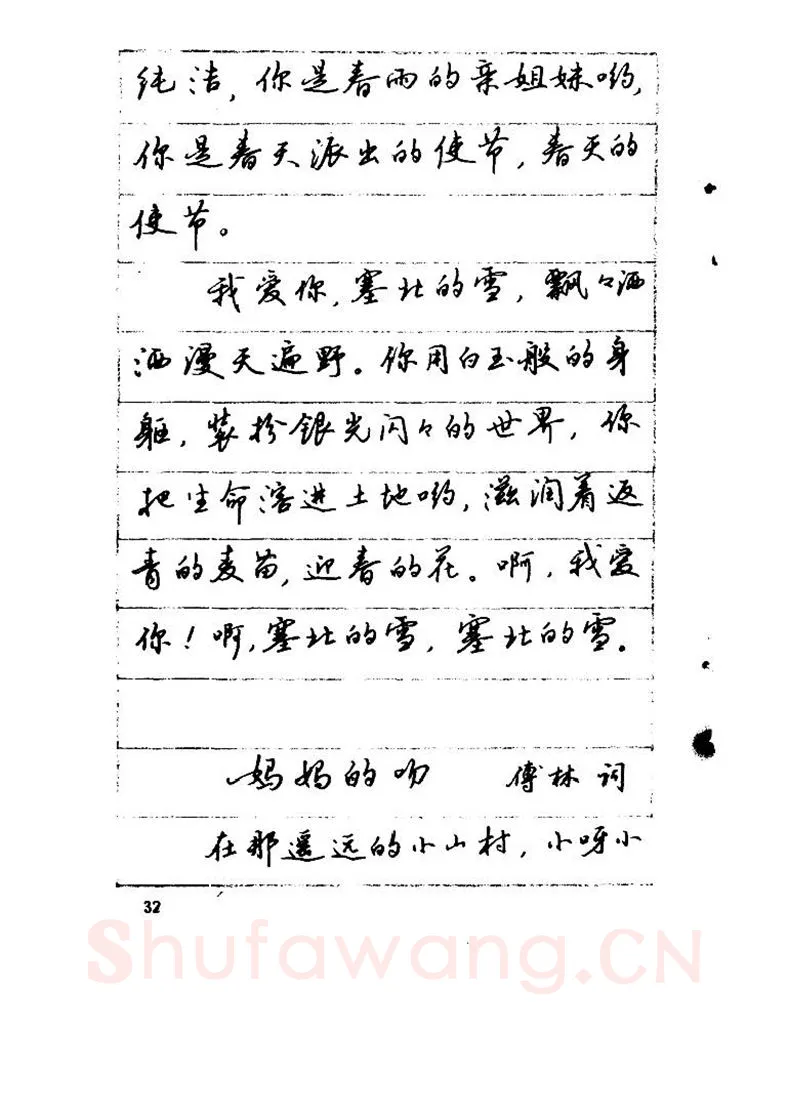 纯洁，你是春雨的亲姐妹哟，
你是春天派出的使节，春天的
使节。
我爱你，塞北的雪，飘々洒
洒漫天遍野。你用白玉般的身
躯，装扮银光闪々的世界，你
把生命溶进土地哟，滋润着返
青的麦苗，迎春的花。啊，我爱
你！啊，塞北的雪，塞北的雪。
妈妈的吻　傅林 词
在那遥远的小山村，小呀小
32
Shufawang.CN